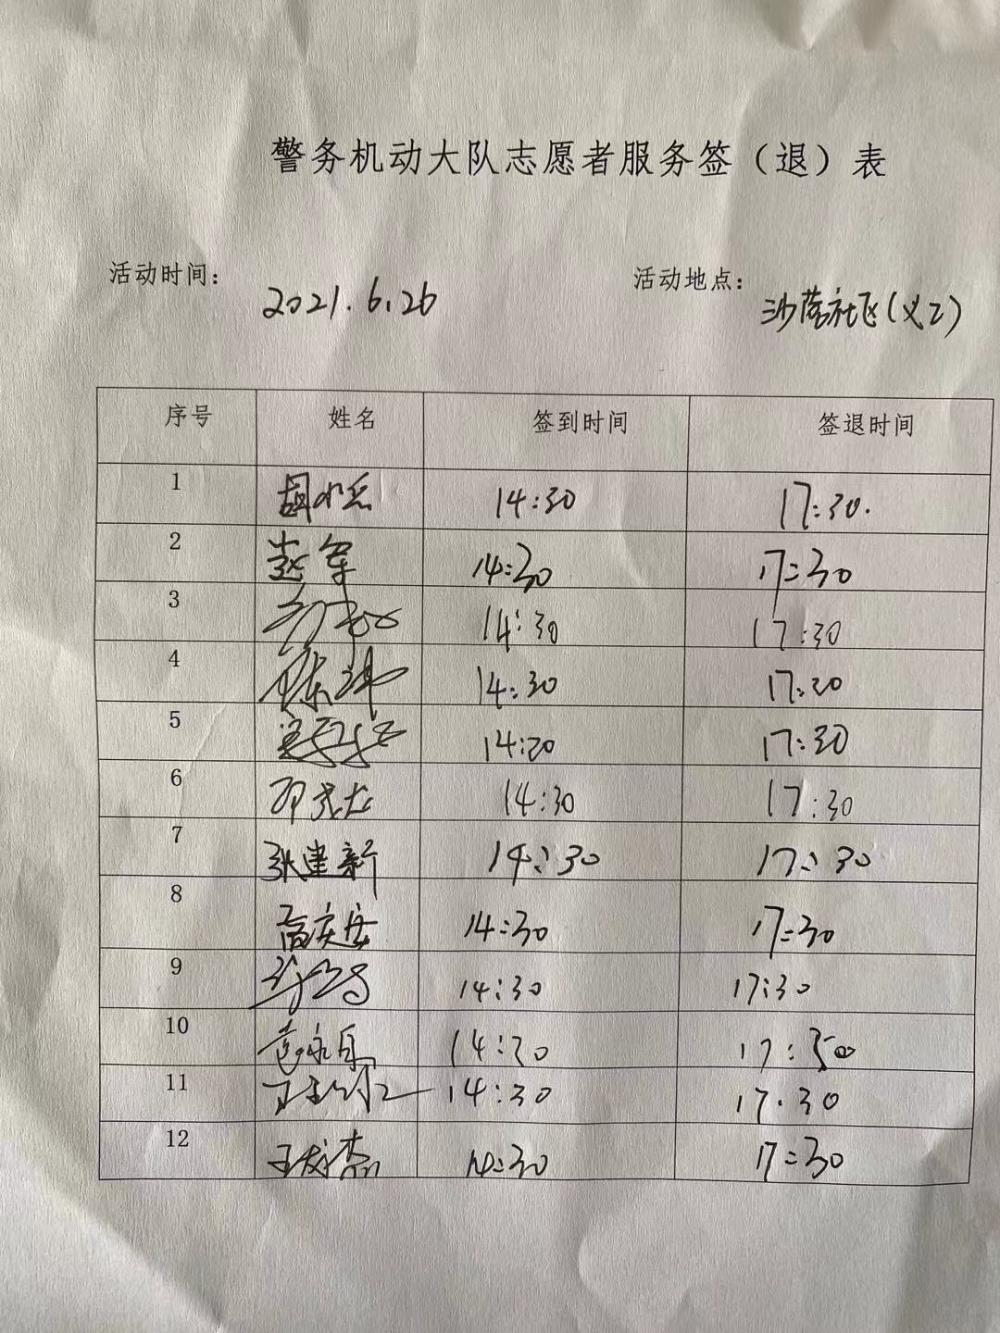 警务机动大队志愿者服务签（退）表
活动时间： 2021.6.26 活动地点： 沙 社区(义工)
序号 姓名 签到时间 签退时间
1 胡 14:30 17:30.
2 赵军 14:30 17:30
3 14:30 17:30
4 陈 14:30 17:30
5 14:30 17:30
6 邓 龙 14:30 17:30
7 张建新 14:30 17:30
8 高庆安 14:30 17:30
9 14:30 17:30
10 袁永 14:30 17:30
11 14:30 17.30
12 王 杰 14:30 17:30